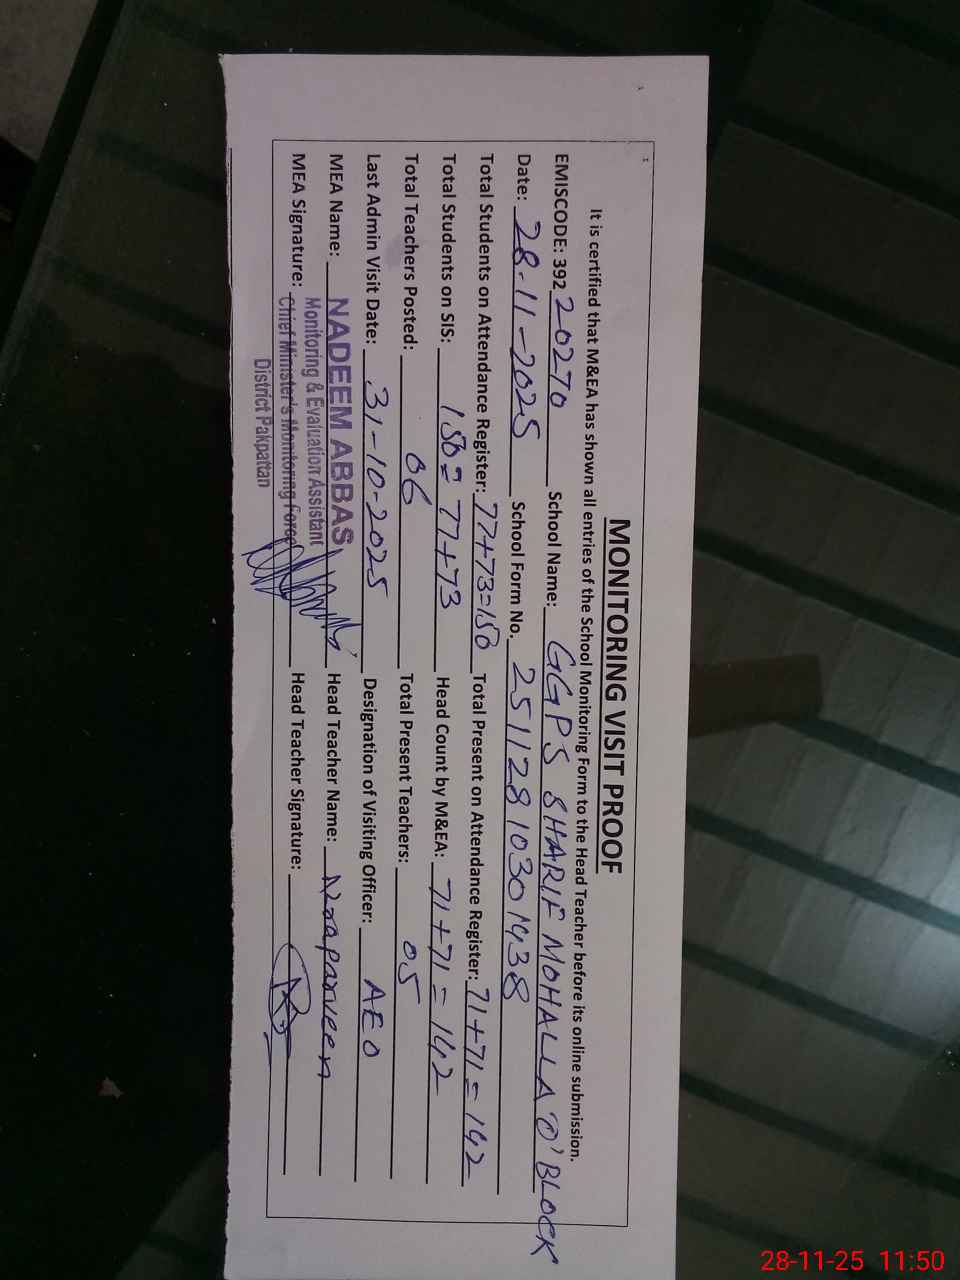 MONITORING VISIT PROOF
It is certified that M&EA has shown all entries of the School Monitoring Form to the Head Teacher before its online submission.
EMISCODE: 392 20270 School Name: GGPS SHARIF MOHALLA 'O' BLOCK
Date: 28-11-2025 School Form No. 2511281030 1438
Total Students on Attendance Register: 77+73=150 Total Present on Attendance Register: 71+71=142
Total Students on SIS: 150=77+73 Head Count by M&EA: 71+71=142
Total Teachers Posted: 06 Total Present Teachers: 05
Last Admin Visit Date: 31-10-2025 Designation of Visiting Officer: AEO
MEA Name: NADEEM ABBAS Head Teacher Name: Noaparveen
Monitoring & Evaluation Assistant
MEA Signature: Chief Minister's Monitoring Force Head Teacher Signature:
District Pakpattan
28-11-25 11:50